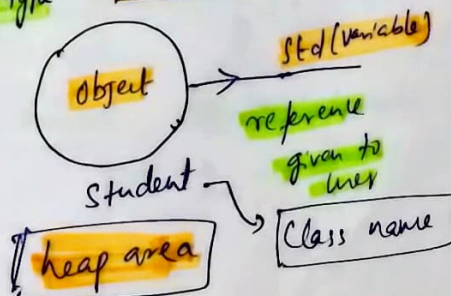 type
Std (variable)
object
reference
given to
user
Student
Class name
heap area